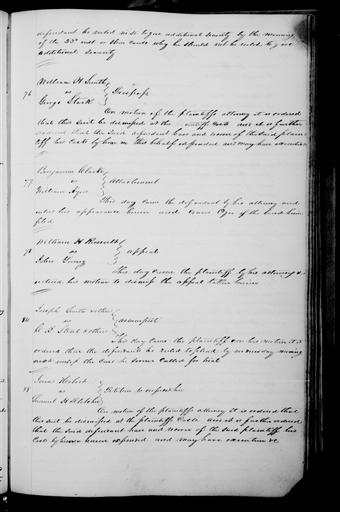 defendant be ruled to give additional security by the morning
of the 23d inst or show cause why he should not be ruled to give
additional security
William H Smith
76 vs
George Stark
On motion of the plaintiffs attorney it is ordered
that this suit be dismissed at the costs and it is further
ordered that the said defendant have and recover of the said plain
tiff his costs by him in this behalf expended and may have execution
Benjamin Clark
77 vs Attachment
William
This day came the defendant by his attorney and
enters his appearance herein and
filed
William H Russell
78 vs Appeal
John Young
This day came the plaintiff by his attorney &
his motion to dismiss the appeal taken herein
Joseph Smith & other
vs assumpsit
& other
This day came the plaintiffs on his motion it is
ordered that the defendant be ruled to plead by morning
next unless the case is sooner called for trial
Herbert
vs Petition
Samuel H
On motion of the plaintiffs attorney it is ordered that
this suit be dismissed at the plaintiffs costs and it is further ordered
that the said defendant have and recover of the said plaintiff his
costs by him herein expended and may have execution &c